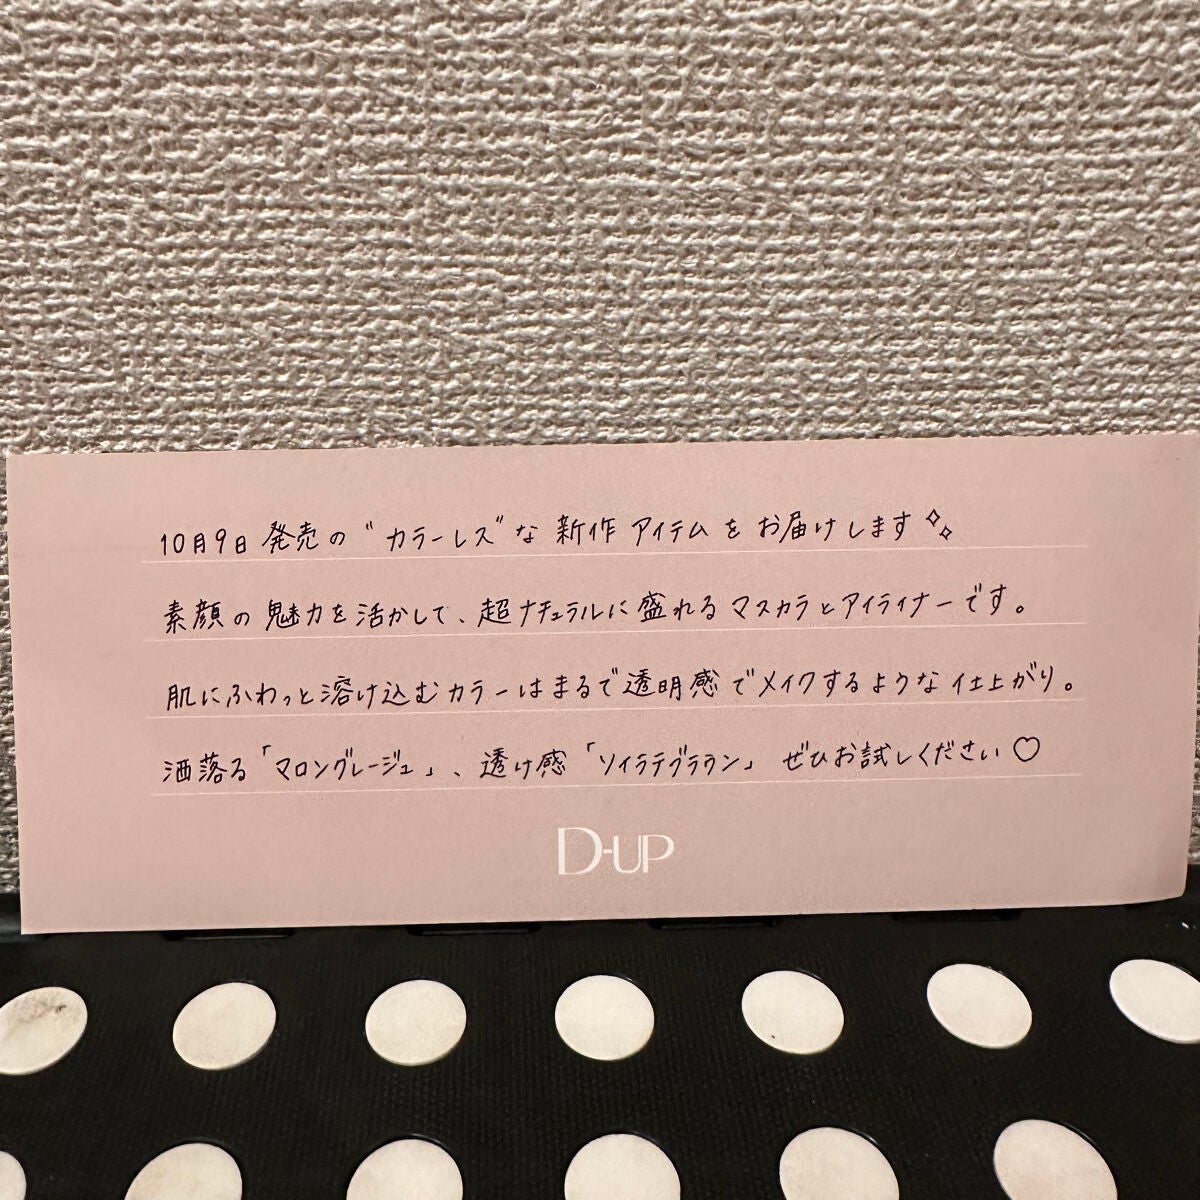 10月9日 発売の“カラーレス”な 新作 アイテムを お届けします✧
素顔の魅力を活かして、超ナチュラルに盛れるマスカラとアイライナーです。
肌にふわっと溶け込むカラーはまるで透明感でメイクするような仕上がり。
洒落る「マロングレージュ」、透け感「ソイラテブラウン」ぜひお試しください♡
D-UP